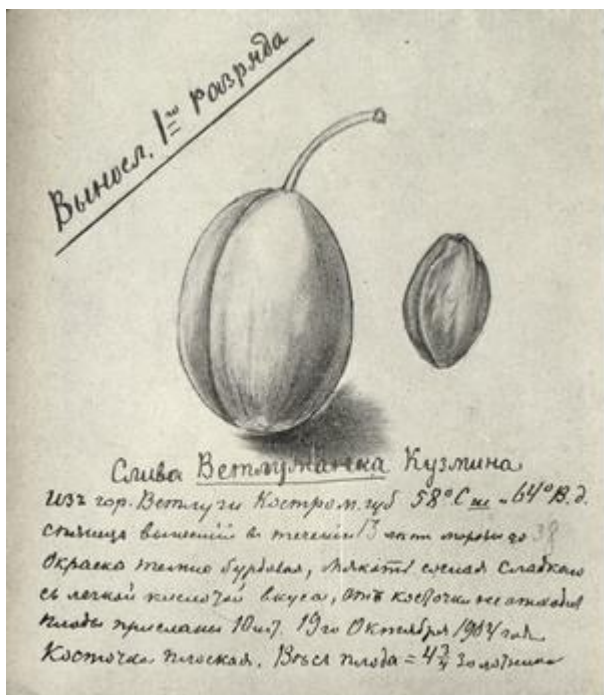 Выносл. 1го разряда
Слива Ветлужанка Кузмина
Изъ гор. Ветлуги Костром. губ 58° С ш 64° В. д.
въ течении 13 лет до 38
Окраска темно бурдовая, мякоть сочная сладкаго
съ легкой кислотой вкуса, отъ косточки не
плоды присланы 10 шт. 19го Октября 1904 года
Косточка плоская. Весъ плода = 4 3/4 золотника